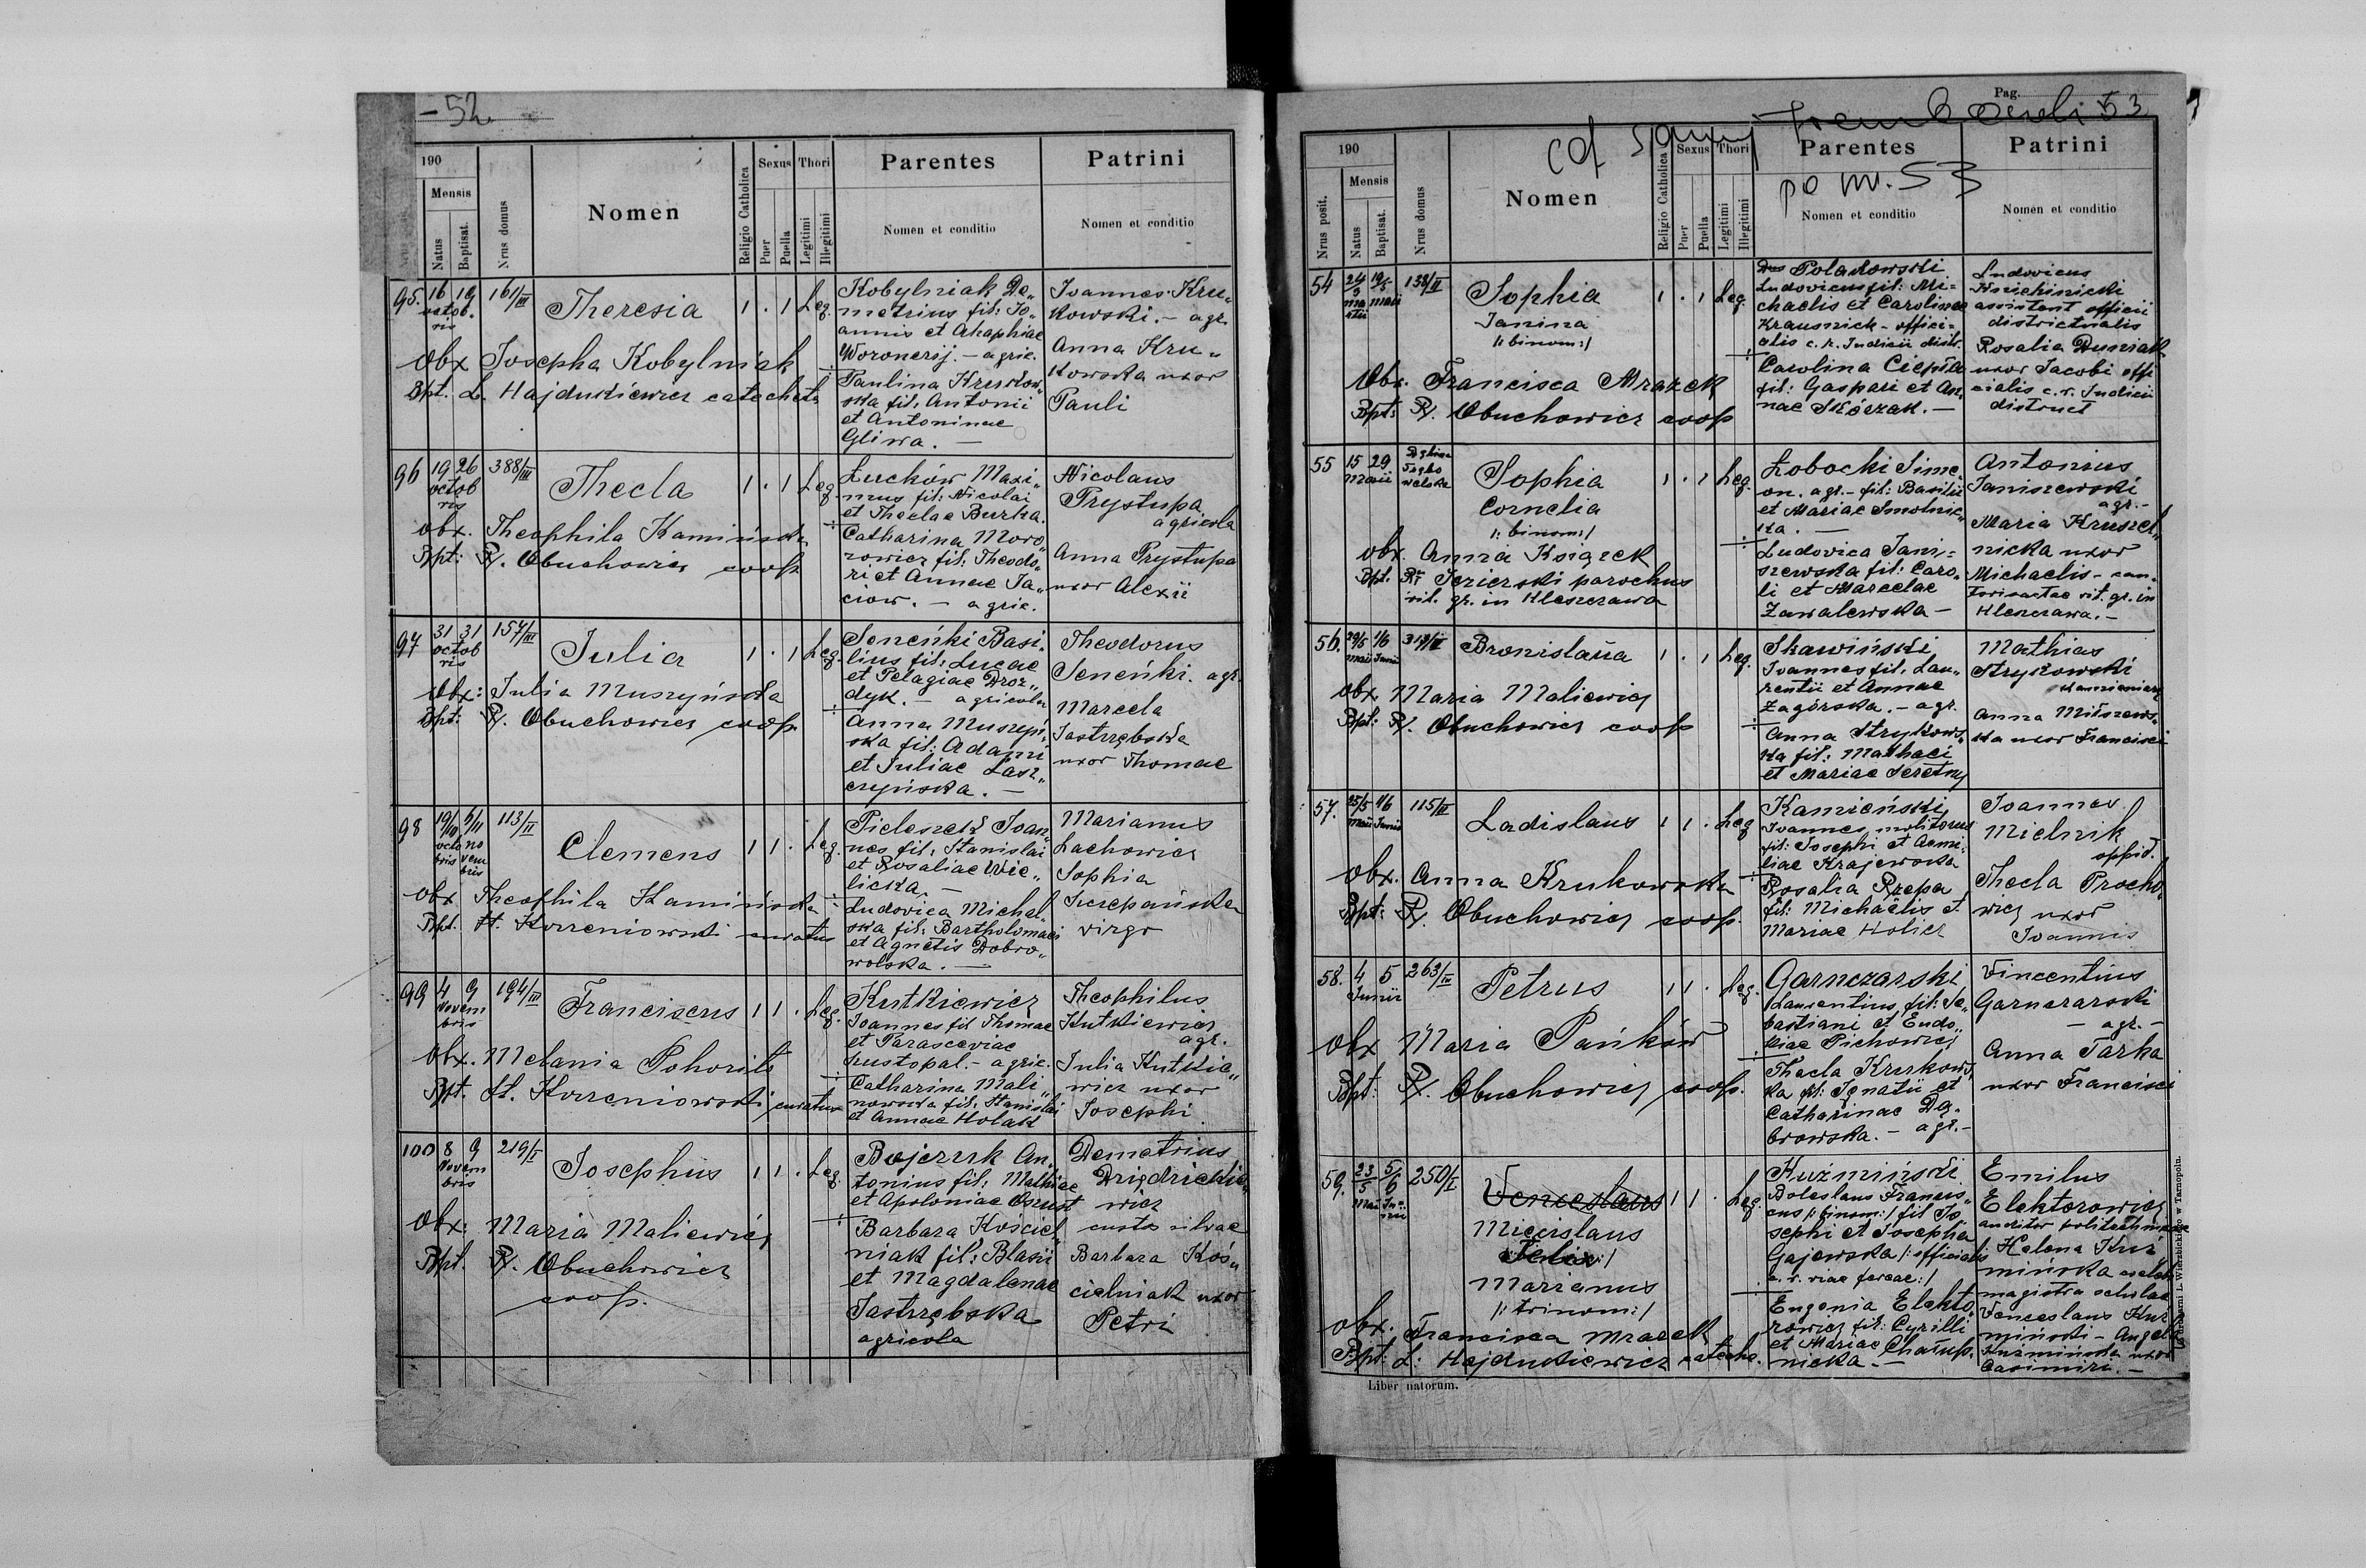 - 52.
190
Mensis
Natus
Baptisat.
Nrus domus
Nomen
Religio Catholica
Sexus
Puer
Puella
Thori
Legitimi
Illegitimi
Parentes
Nomen et conditio
Patrini
Nomen et conditio
95. 16 19 octobris 161/III
Theresia 1 . 1 Leg.
Obx Josepha Kobylniak
Bpt. L. Hajdukiewicz catecheta
Kobylniak De„
metrius fil: Jo„
annis et Ahaphiae
Woronerij. – agric.
÷
Paulina Krukow„
ska fil: Antonii
et Antoninae
Gliwa. —
Ioannes Kru„
kowski. – agr.
Anna Kru„
kowska uxor
Pauli
96 19 26 octobris 388/III
Thecla 1 . 1 Leg.
obx. Theophila Kamińska
Bpt: R. Obuchowicz coop
Łucków Maxi„
mus fil: Nicolai
et Theclae Burka.
÷
Catharina Moro„
zowicz fil: Theodo„
ri et Annae Ja„
ciow. – agric.
Nicolaus
Prystupa
agricola
Anna Prystupa
uxor Alexii
97 31 31 octobris 157/III
Julia 1 . 1 Leg.
Obx: Julia Muszyńska
Bpt: R. Obuchowicz coop.
Seneńki Basi„
lius fil: Lucae
et Pelagiae Droz„
dyk. – agricola
÷
Anna Muszyń„
ska fil: Adami
et Juliae Lasz„
czyńska. —
Theodorus
Seneńki. agr.
Marcela
Jastrzębska
uxor Thomae
98 19/10 5/11 octobris novembris 113/II
Clemens 1 1 . Leg.
Obx Theophila Kamińska
Bpt. St. Korzeniowski curatus
Pieleszek Joan„
nes fil: Stanislai
et Rosaliae Wie„
licka. —
÷
Ludovica Michal„
ska fil: Bartholomaei
et Agnetis Dobro„
wolska. —
Marianus
Lachowicz
Sophia
Szczepańska
virgo
99 4 9 Novembris 194/III
Franciscus 1 1 . Leg.
Obx. Melania Pohorila
Bpt. St. Korzeniowski curatus
Kutkiewicz
Joannes fil Thomae
et Parasceviae
Pustopal. – agric.
÷
Catharina Mali„
nowska fil: Stanislai
et Annae Holak
Theophilus
Kutkiewicz
agr.
Julia Kutkie„
wicz uxor
Josephi
100 8 9 Novembris 219/I
Josephus 1 1 . Leg.
Obx: Maria Maliewicz
Bpt. R. Obuchowicz
coop.
Bojczuk An„
tonius fil: Mathiae
et Apoloniae Oszust
÷
Barbara Kościel„
niak fil: Blasii
et Magdalenae
Jastrzębska
agricola
Demetrius
wicz
custo silvae
Barbara Koś„
cielniak uxor
Petri
Pag. 53
Trembowla
cd
po nr. 53
190
Nrus posit.
Mensis
Natus
Baptisat.
Nrus domus
Nomen
Religio Catholica
Sexus
Puer
Puella
Thori
Legitimi
Illegitimi
Parentes
Nomen et conditio
Patrini
Nomen et conditio
54 24/3 19/5 martii maii 138/II
Sophia 1 . 1 Leg.
Janina
/: binom:/
Obx. Francisca Mrazek
Bpt: R. Obuchowicz coop
Polakowski
Ludovicus fil: Mi=
chaelis et Carolinae
Krausnick – offici=
alis c. r. Judicii distr.
÷
Carolina Ciepła
fil: Gaspari et An„
nae Skórzak. —
Ludovicus
Kniehinicki
assistent officii
districtualis
Rosalia Duniak
uxor Jacobi offi
cialis c. r. Judicii
district
55 15 29 Maii
Sophia 1 . 1 Leg.
Cornelia
/: binom:/
obx. Anna Książek
Bpt. Jezierski parochus
rit. gr. in Hleszczawa
Łobocki Sime
on. agr. – fil: Basilii
et Mariae Smolnic„
ka. —
÷
Ludovica Jani=
szewska fil: Caro„
li et Marcelae
Zawalewska —
Antonius
Janiszewski
agr. –
Maria Kruszel„
nicka uxor
Michaelis – can„
torisactae rit. gr. in
Hleszczawa. –
56. 29/5 1/6 maii Junii
Bronislaŭa 1 . 1 Leg.
obx. Maria Maliewicz
Bpt: R. Obuchowicz coop
Skawiński
Joannes fil. Lau„
rentii et Annae
Zagórska. – agr.
÷
Anna Strykows„
ka fil: Mathaei
et Mariae Seretny
Mathias
Strykowski
kamieniarz
Anna Milszews„
ka uxor Francisci
57. 25/5 1/6 Maii Junii 115/II
Ladislaus 1 1 . Leg
Obx. Anna Krukowska
Bpt: R. Obuchowicz coop.
Kamieński
Joannes molitorus
fil: Josephi et Aemi„
liae Krajewska
÷
Rosalia Rzepa
fil: Michaëlis et
Mariae Holicz
Joannes
Mielnik
oppid.
Thecla Procho„
wicz uxor
Joannis
58. 4 5 Junii 263/IV
Petrus 1 1 . Leg.
Obx Maria Pańków
Bpt: R. Obuchowicz coop.
Garnczarski
Laurentius fil: Se„
bastiani et Eudo„
kiae Pichowicz
÷
Thecla Krukows„
ka fil: Ignatii et
Catharinae Dą„
browska. – agr. –
Vincentius
Garnczarski
– agr. –
Anna Tarka
uxor Francisci
59. 23/5 5/6 Maii Junii 250/I
Venceslaus 1 1 . Leg.
Miecislaus
Felix:/
Marianus
/: trinom:/
obx. Francisca Mrazek
Bpt: L: Hajdukiewicz cateche.
Kuźmiński
Boleslaus Francis„
cus /: binom:/ fil Jo
sephi et Josepha
Gajewska /: officialis
c. r. viae ferreae:/
÷
Eugenia Elekto„
rowicz fil: Cyrilli
et Mariae Chałup„
nicka. —
Emilus
Elektorowicz
auditor politechnicae
Helena Kuź
mińska
magistra scholae
Venceslaus Kuź
miński – Angela
Kuźmińska uxor
Casimiri. –
Liber natorum.
Z drukarni L. Wierzbickiego w Tarnopolu.